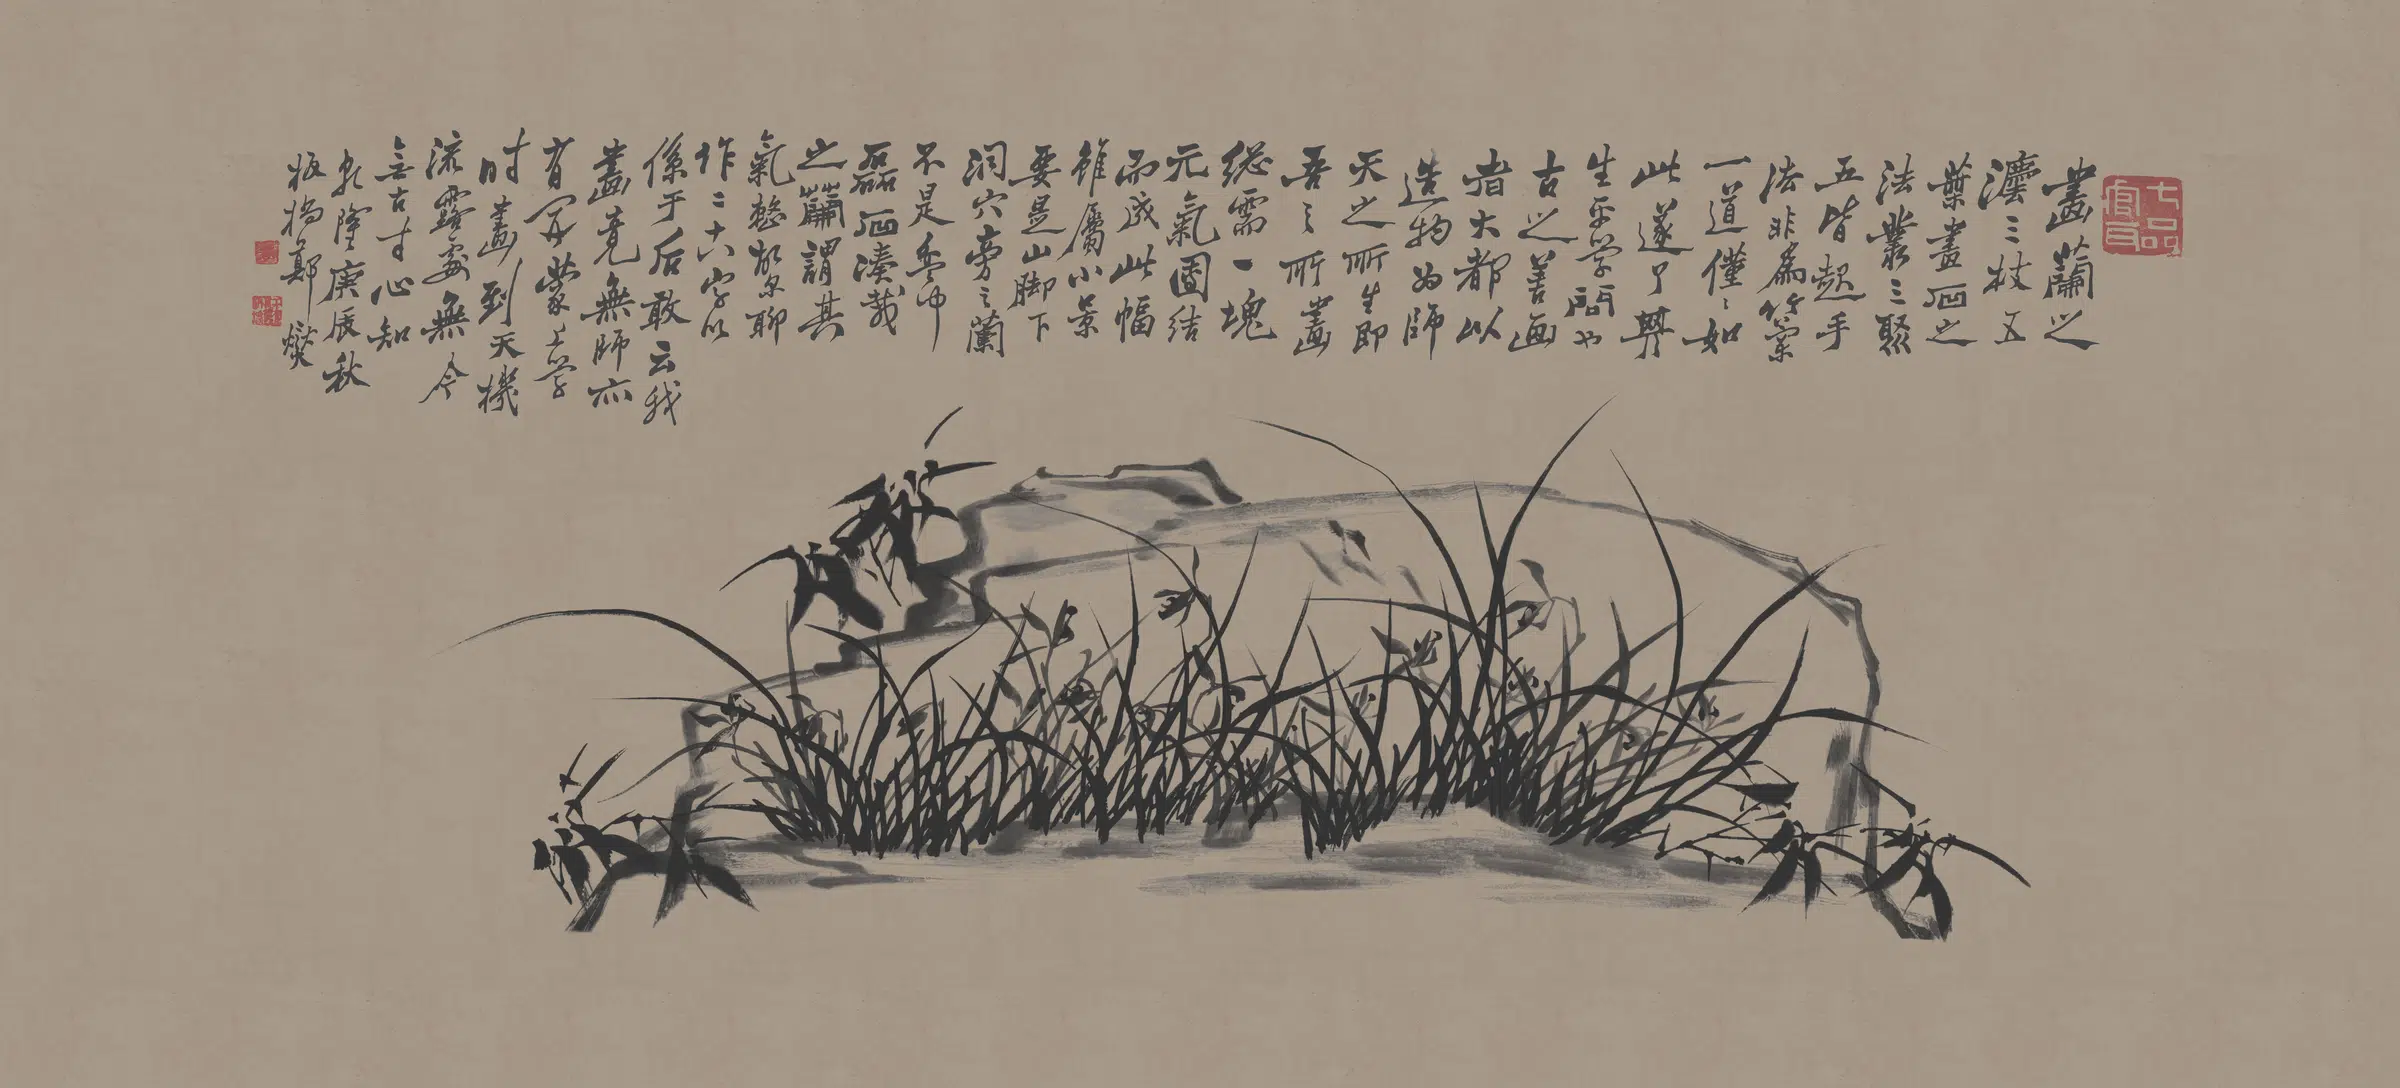 七品官耳
畫蘭之
灋三枝五
葉畫石之
法叢三聚
五皆起手
法非為竹蘭
一道僅〻如
此遂了其
生平學問也
古之善画
者大都以
造物为師
天之所生即
吾之所畫
總需一塊
元氣團結
而成此幅
雖屬小景
要是山脚下
洞穴旁之蘭
不是盆中
磊石湊栽
之蘭謂其
氣整故尔聊
作二十八字以
係于后敢云我
畫竟無師亦
有開蒙上學
時畫到天機
流露處無今
無古寸心知
乾隆庚辰秋
板橋鄭燮